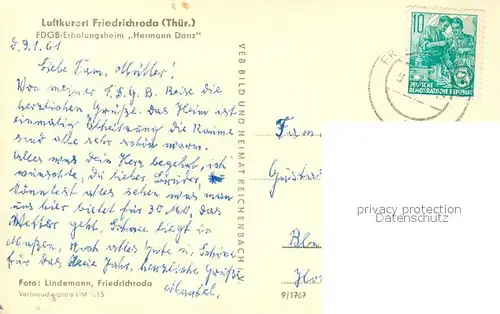 Luftkurort Friedrichroda (Thür.)
FDGB-Erholungsheim „Hermann Danz"
d. 9.1.61
Liebe Fam. Müller!
Von meiner F.D.G.B. Reise die
herzlichen Grüße. Das Heim ist
einmalig Heitzung die Räume
sind alle sehr schön warm.
Alles was dein Herz begehrt, ich
wünschte, du lieber Bruder,
könntest alles sehen was man
uns hier bietet für 30 M, das
Wetter geht, Schnee liegt in
Maßen. Noch alles Gute u. Schöne
für das Neue Jahr. herzliche Grüße
Foto: Lindemann, Friedrichroda
Verbraucherpreis DM -.15
VEB BILD UND HEIMAT REICHENBACH I. V.
9/1767
Fam.
Gustav
10
DEUTSCHE
DEMOKRATISCHE REPUBLIK
FR
privacy protection
Datenschutz